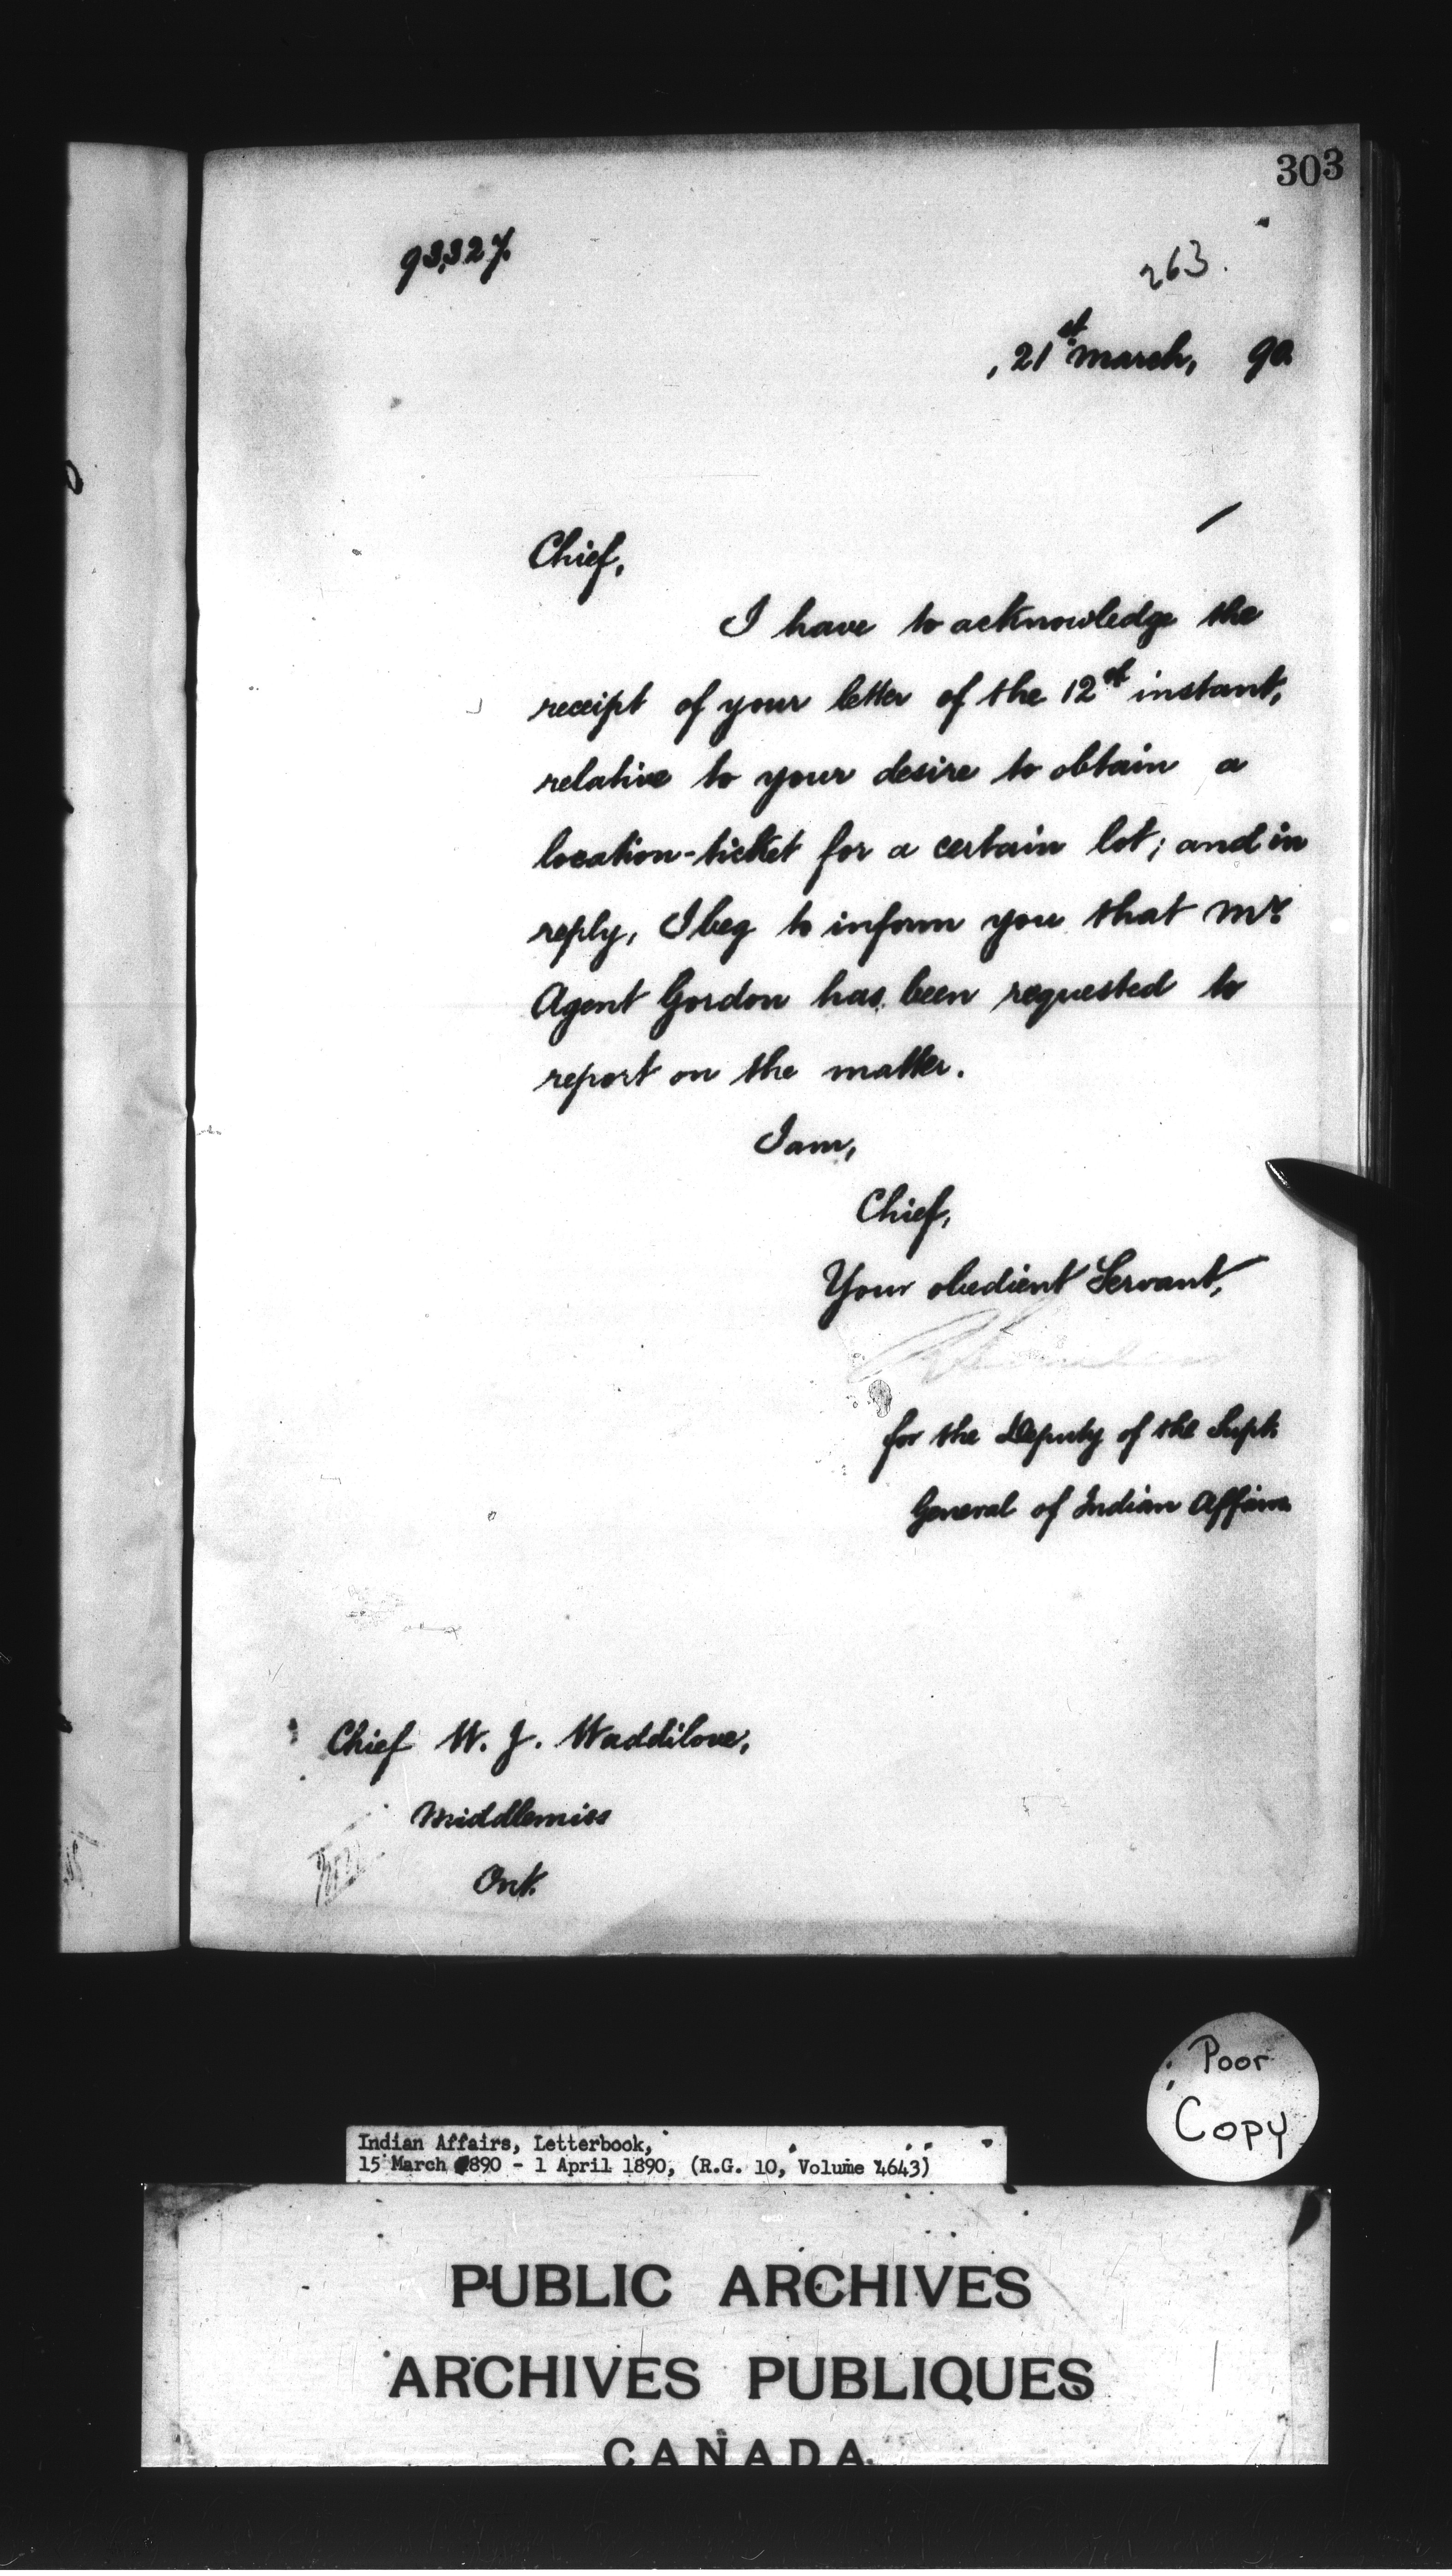 303
93,327.
263.
, 21st March, 90.
Chief,
I have to acknowledge the
receipt of your letter of the 12th instant,
relative to your desire to obtain a
location-ticket for a certain lot; and in
reply, I beg to inform you that Mr.
Agent Gordon has been requested to
report on the matter.
I am,
Chief,
Your obedient Servant,
for the Deputy of the Supt.
General of Indian Affairs.
Chief W. J. Waddilove,
Middlemiss
Ont.
Poor
Copy
Indian Affairs, Letterbook,
15 March 1890 - 1 April 1890, (R.G. 10, Volume 4643)
PUBLIC ARCHIVES
ARCHIVES PUBLIQUES
CANADA